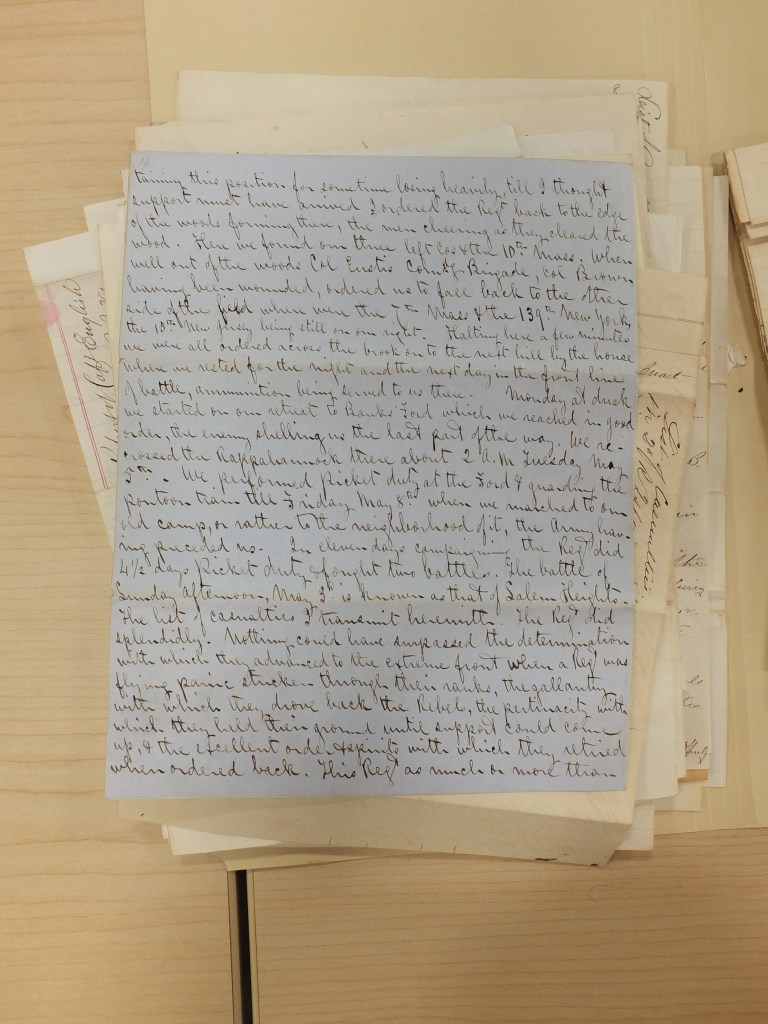 taining this position for sometime losing heavily, till I thought
support must have arrived I ordered the Regt back to the edge
of the woods forming there, the men cheering as they cleared the
wood. Here we found our three left Cos & the 10th Mass. When
well out of the woods Col Eustis Comdg Brigade, Col Brown
having been wounded, ordered us to fall back to the other
side of the field where were the 7th Mass & the 139th New York,
the 15th New Jersey being still on our right. Halting here a few minutes
we were all ordered across the brook on to the next hill by the house
where we rested for the night and the next day in the front line
of battle, ammunition being served to us there. Monday at dusk
we started on our retreat to Banks' Ford which we reached in good
order, the enemy shelling us the last part of the way. We re-
crossed the Rappahannock there about 2 A.M. Tuesday May
5th. We performed picket duty at the Ford & guarding the
pontoon train till Friday May 8th when we marched to our
old camp, or rather to the neighborhood of it, the Army hav-
ing preceded us. In eleven days campaigning the Regt did
4½ days Picket duty & fought two battles. The battle of
Sunday afternoon, May 3d is known as that of Salem Heights.
The list of casualties I transmit herewith. The Regt did
splendidly. Nothing could have surpassed the determination
with which they advanced to the extreme front when a Regt was
flying panic stricken through their ranks, the gallantry
with which they drove back the Rebels, the pertinacity with
which they held their ground until support could come
up, & the excellent order & spirits with which they retired
when ordered back. This Regt as much or more than
Capt English
List of Casualties